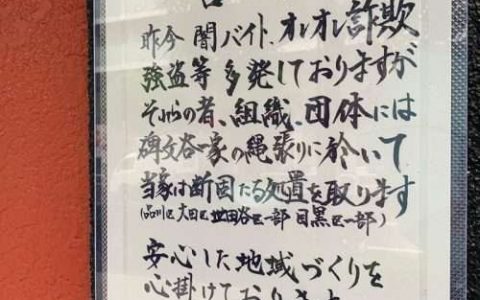 昨今闇バイト、オレオレ詐欺
強盗等多発しておりますが
それらの者、組織、団体には
碑文谷一家の縄張りに於いて
当家は断固たる処置を取ります
(品川区 大田区 世田谷区一部 目黒区一部)
安心した地域づくりを
心掛けております